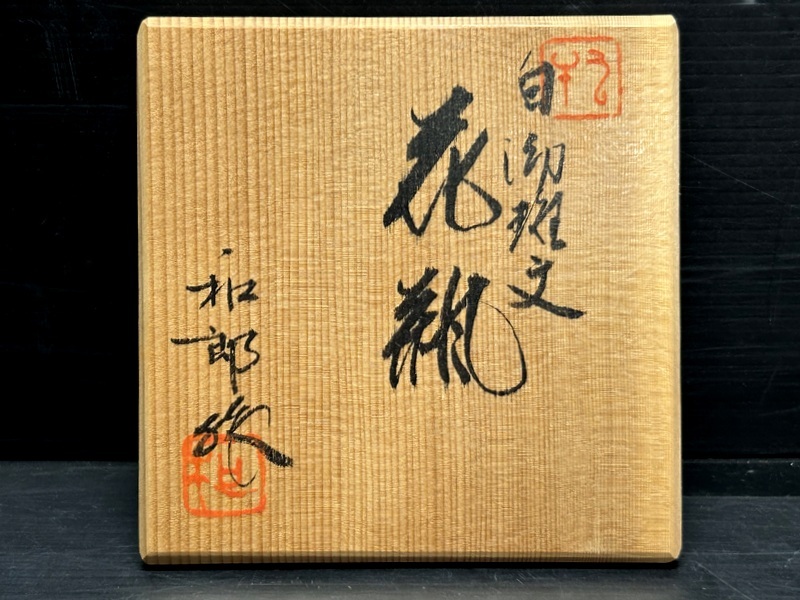 白泑堆文
花瓶
和郎作